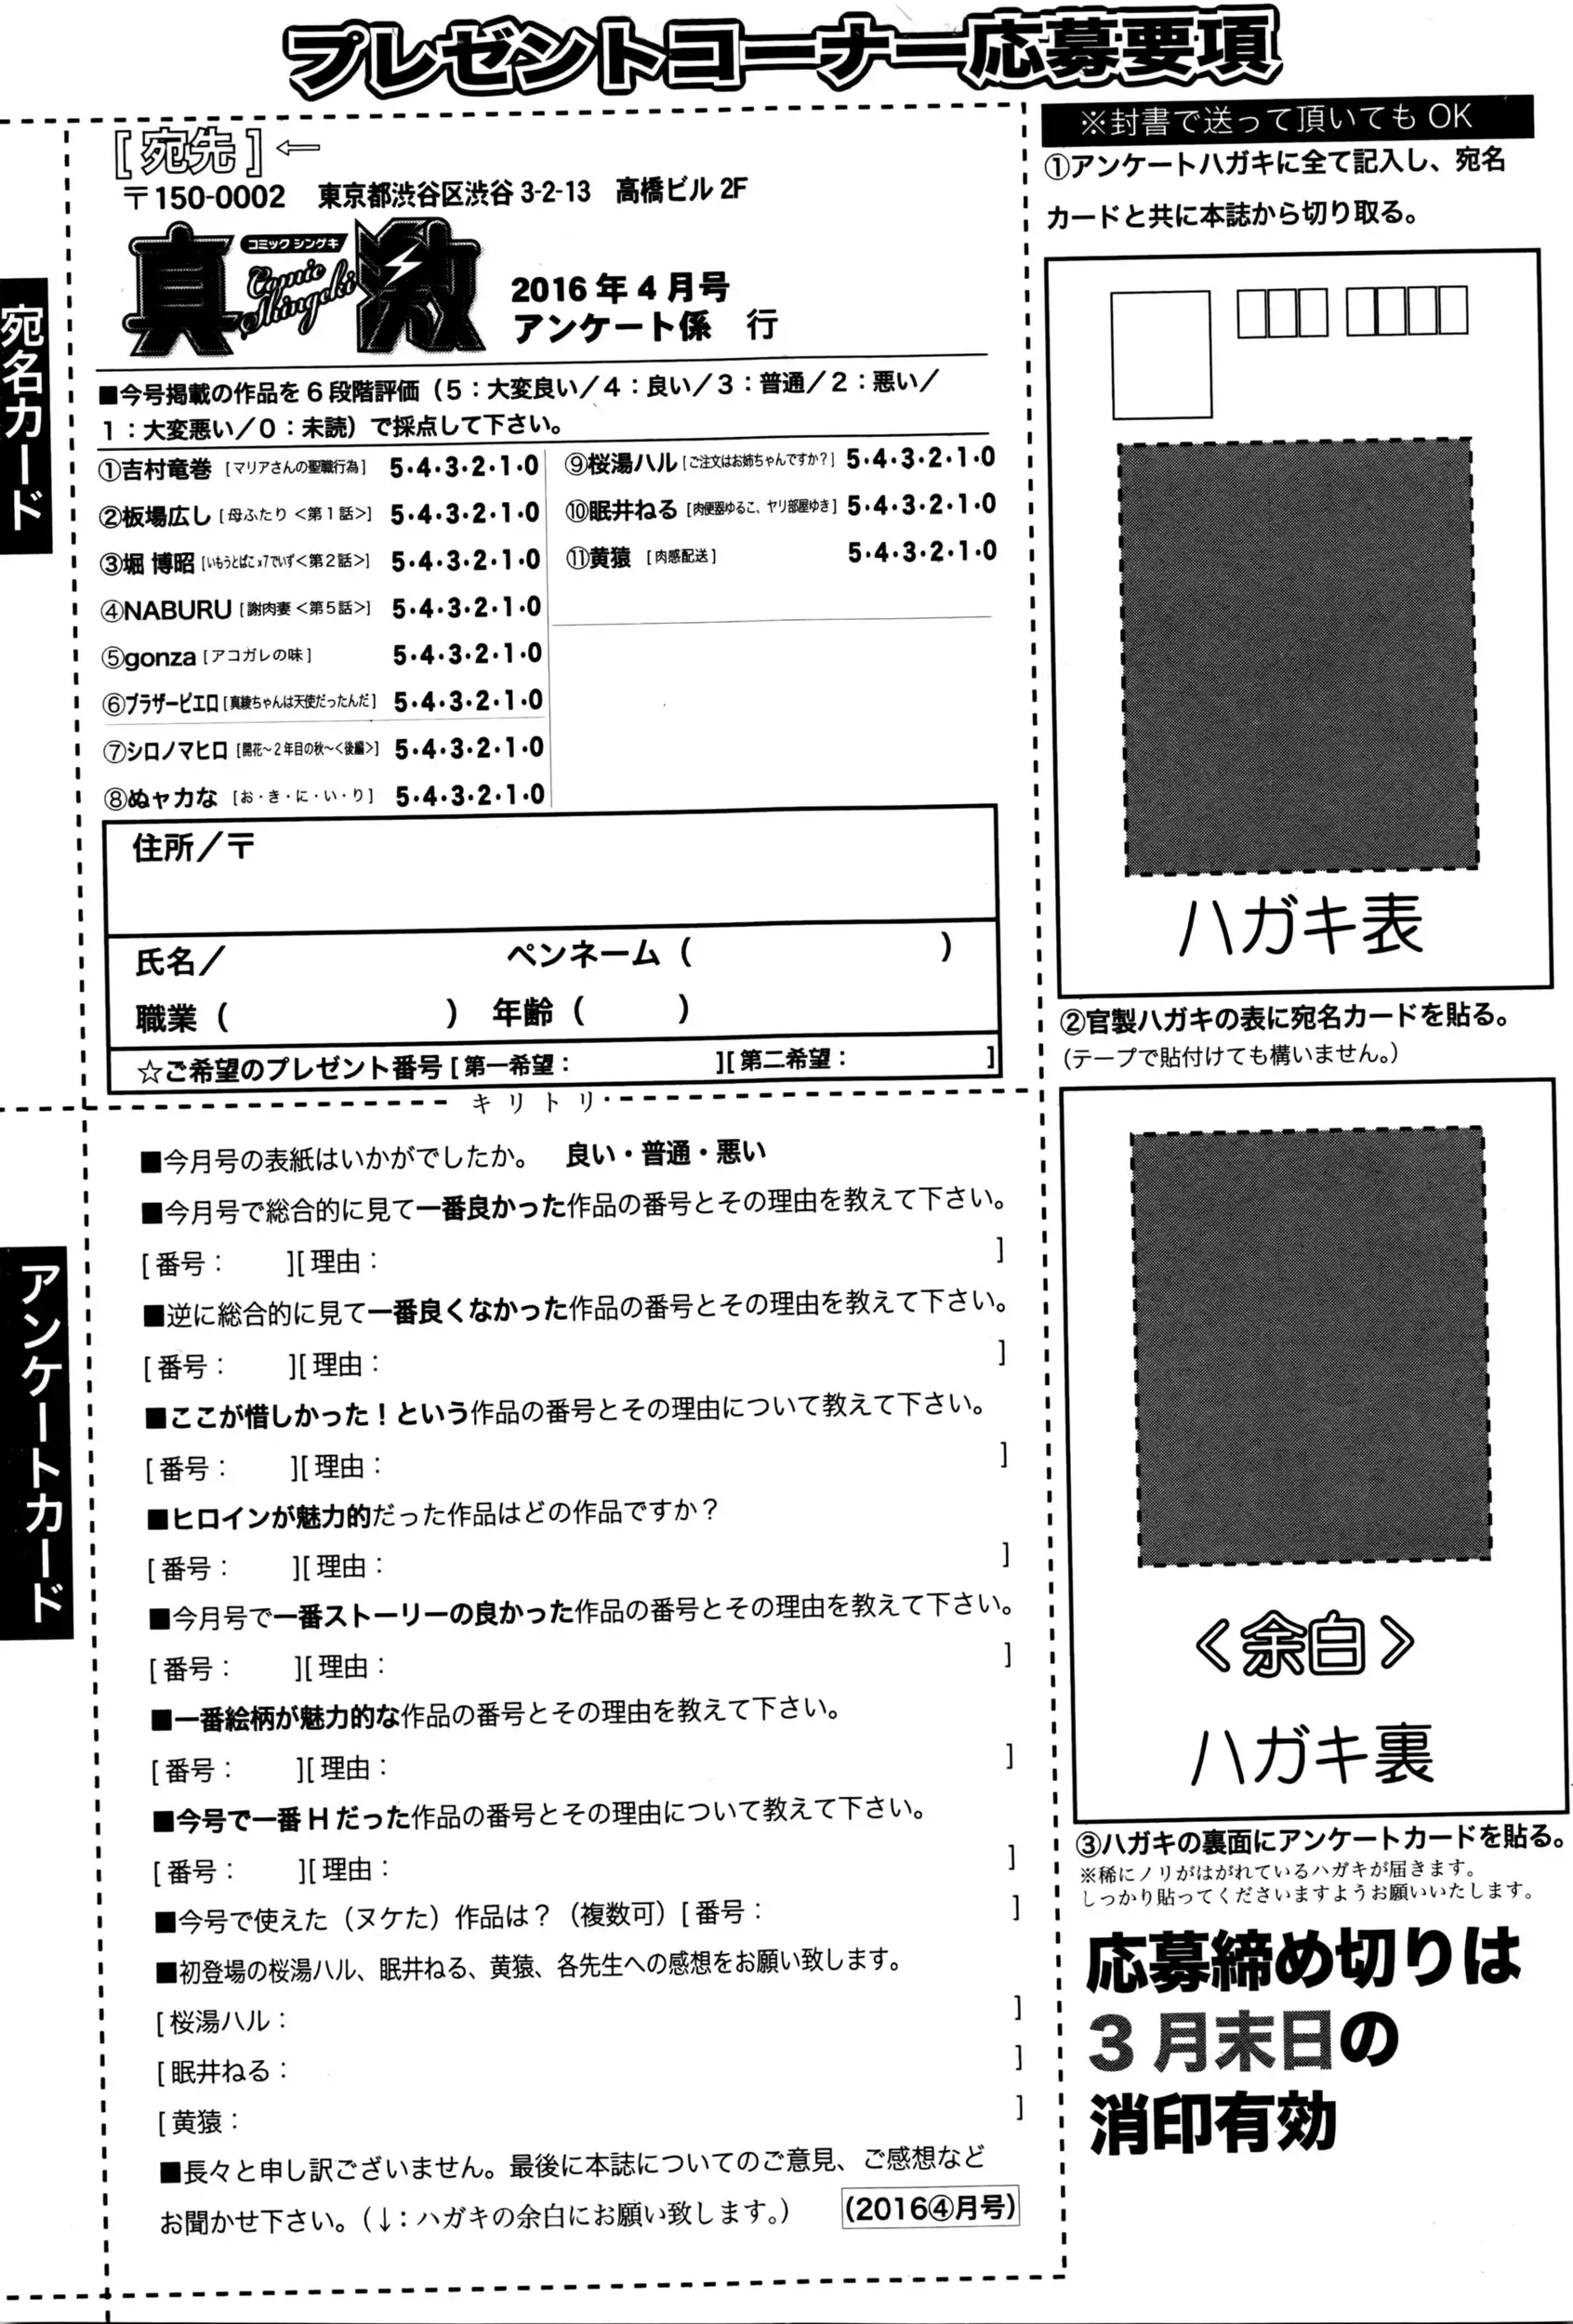 プレゼントコーナー応募要項
宛名カード
[宛先]⇦
〒150-0002 東京都渋谷区渋谷 3-2-13 高橋ビル 2F
真激
コミック シンゲキ
Comic Shingeki
2016 年 4 月号
アンケート係 行
■今号掲載の作品を 6 段階評価（5：大変良い／4：良い／3：普通／2：悪い／
1：大変悪い／0：未読）で採点して下さい。
①吉村竜巻 [マリアさんの聖職行為] 5・4・3・2・1・0
②板場広し [母ふたり <第１話>] 5・4・3・2・1・0
③堀 博昭 [いもうとぱこx7でいず<第２話>] 5・4・3・2・1・0
④NABURU [謝肉妻 <第５話>] 5・4・3・2・1・0
⑤gonza [アコガレの味] 5・4・3・2・1・0
⑥ブラザーピエロ [真綾ちゃんは天使だったんだ] 5・4・3・2・1・0
⑦シロノマヒロ [開花～２年目の秋～<後編>] 5・4・3・2・1・0
⑧ぬャカな [お・き・に・い・り] 5・4・3・2・1・0
⑨桜湯ハル [ご注文はお姉ちゃんですか？] 5・4・3・2・1・0
⑩眠井ねる [肉便器ゆるこ、ヤリ部屋ゆき] 5・4・3・2・1・0
⑪黄猿 [肉感配送] 5・4・3・2・1・0
住所／〒
氏名／ ペンネーム（ ）
職業（ ） 年齢（ ）
☆ご希望のプレゼント番号 [ 第一希望： ][ 第二希望： ]
キリトリ
アンケートカード
■今月号の表紙はいかがでしたか。 良い・普通・悪い
■今月号で総合的に見て一番良かった作品の番号とその理由を教えて下さい。
[ 番号： ][ 理由： ]
■逆に総合的に見て一番良くなかった作品の番号とその理由を教えて下さい。
[ 番号： ][ 理由： ]
■ここが惜しかった！という作品の番号とその理由について教えて下さい。
[ 番号： ][ 理由： ]
■ヒロインが魅力的だった作品はどの作品ですか？
[ 番号： ][ 理由： ]
■今月号で一番ストーリーの良かった作品の番号とその理由を教えて下さい。
[ 番号： ][ 理由： ]
■一番絵柄が魅力的な作品の番号とその理由を教えて下さい。
[ 番号： ][ 理由： ]
■今号で一番 H だった作品の番号とその理由について教えて下さい。
[ 番号： ][ 理由： ]
■今号で使えた（ヌケた）作品は？（複数可）[ 番号： ]
■初登場の桜湯ハル、眠井ねる、黄猿、各先生への感想をお願い致します。
[ 桜湯ハル： ]
[ 眠井ねる： ]
[ 黄猿： ]
■長々と申し訳ございません。最後に本誌についてのご意見、ご感想など
お聞かせ下さい。（↓：ハガキの余白にお願い致します。）
(2016④月号)
※封書で送って頂いても OK
①アンケートハガキに全て記入し、宛名
カードと共に本誌から切り取る。
ハガキ表
②官製ハガキの表に宛名カードを貼る。
（テープで貼付けても構いません。）
＜余白＞
ハガキ裏
③ハガキの裏面にアンケートカードを貼る。
※稀にノリがはがれているハガキが届きます。
しっかり貼ってくださいますようお願いいたします。
応募締め切りは
3 月末日の
消印有効